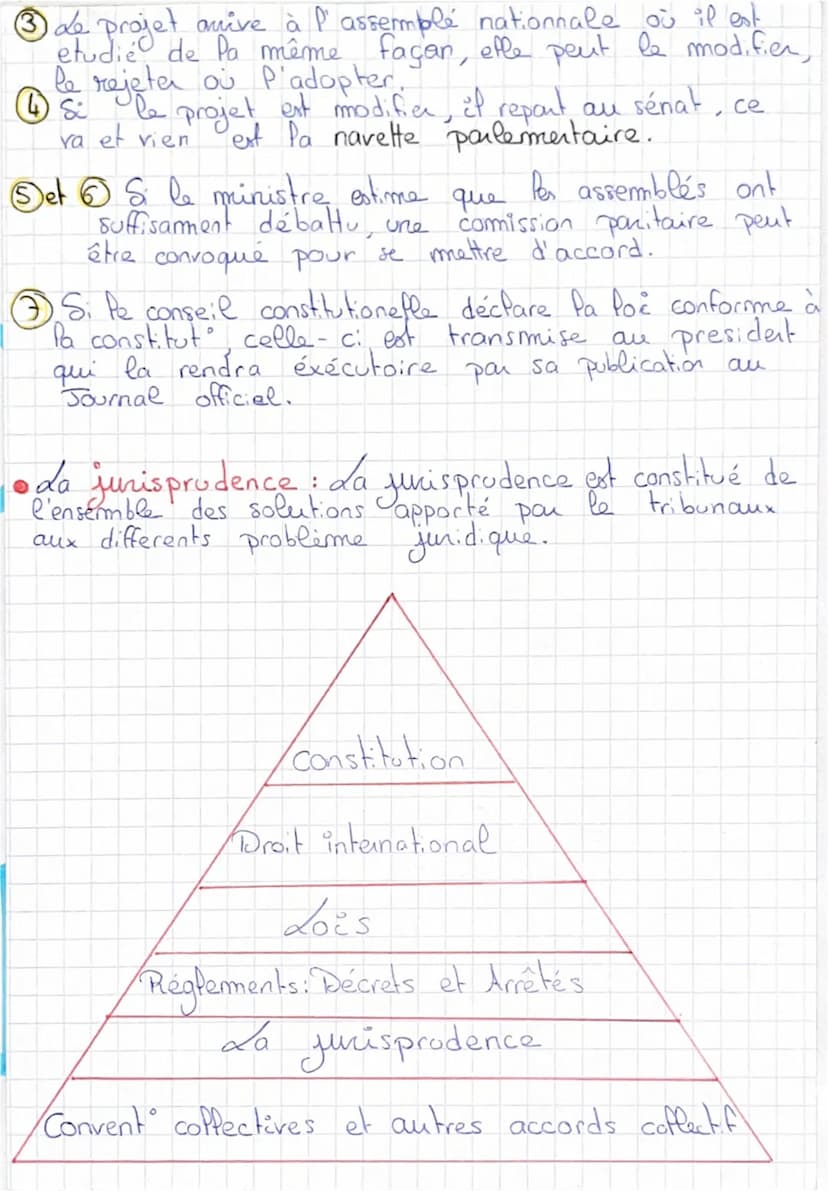 ③ Le projet arrive à l'assemblé nationnale où il est
etudié de la même façan, elle peut le modifier,
le rejeter où l'adopter.
④ Si le projet est modifier, il repart au sénat, ce
va et vien est la navette parlementaire.
⑤ et ⑥ Si le ministre estime que les assemblés ont
suffisamment débattu, une comission paritaire peut
être convoqué pour se mettre d'accord.
⑦ Si le conseil constitutionelle déclare la loi conforme à
la constitut°, celle-ci est transmise au president
qui la rendra éxécutoire par sa publication au
Journal officiel.
• La jurisprudence : La jurisprudence est constitué de
l'ensemble des solutions apporté par le tribunaux
aux differents problème juridique.
Constitution
Droit international
Lois
Réglements: Décrets et Arrêtés
La jurisprudence
Convent° collectives et autres accords collectif